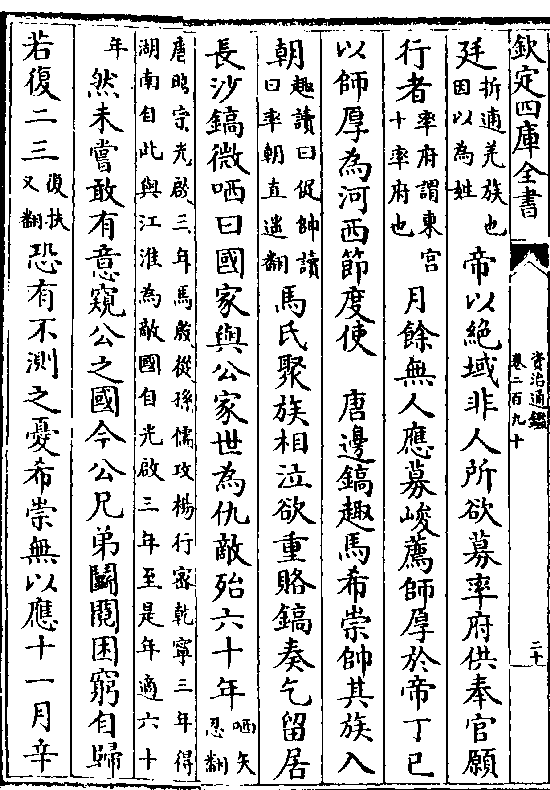 欽定四庫全書
資治通鑑
卷二百九十
二十
廷折逋羌族也
因以為姓帝以絶域非人所欲募率府供奉官願
行者率府謂東宮
十率府也月餘無人應募峻薦師厚於帝丁已
以師厚為河西節度使　唐邊鎬趣馬希崇帥其族入
朝趣讀曰促帥讀
曰率朝直遥翻馬氏聚族相泣欲重賂鎬奏乞留居
長沙鎬微哂曰國家與公家世為仇敵殆六十年哂矢
忍翻
唐昭宗光啟三年馬殷從孫儒攻楊行密乾寧三年得
湖南自此與江淮為敵國自光啟三年至是年適六十
年然未嘗敢有意窺公之國今公兄弟鬬䦧困窮自歸
若復二三復扶
又翻恐有不測之憂希崇無以應十一月辛